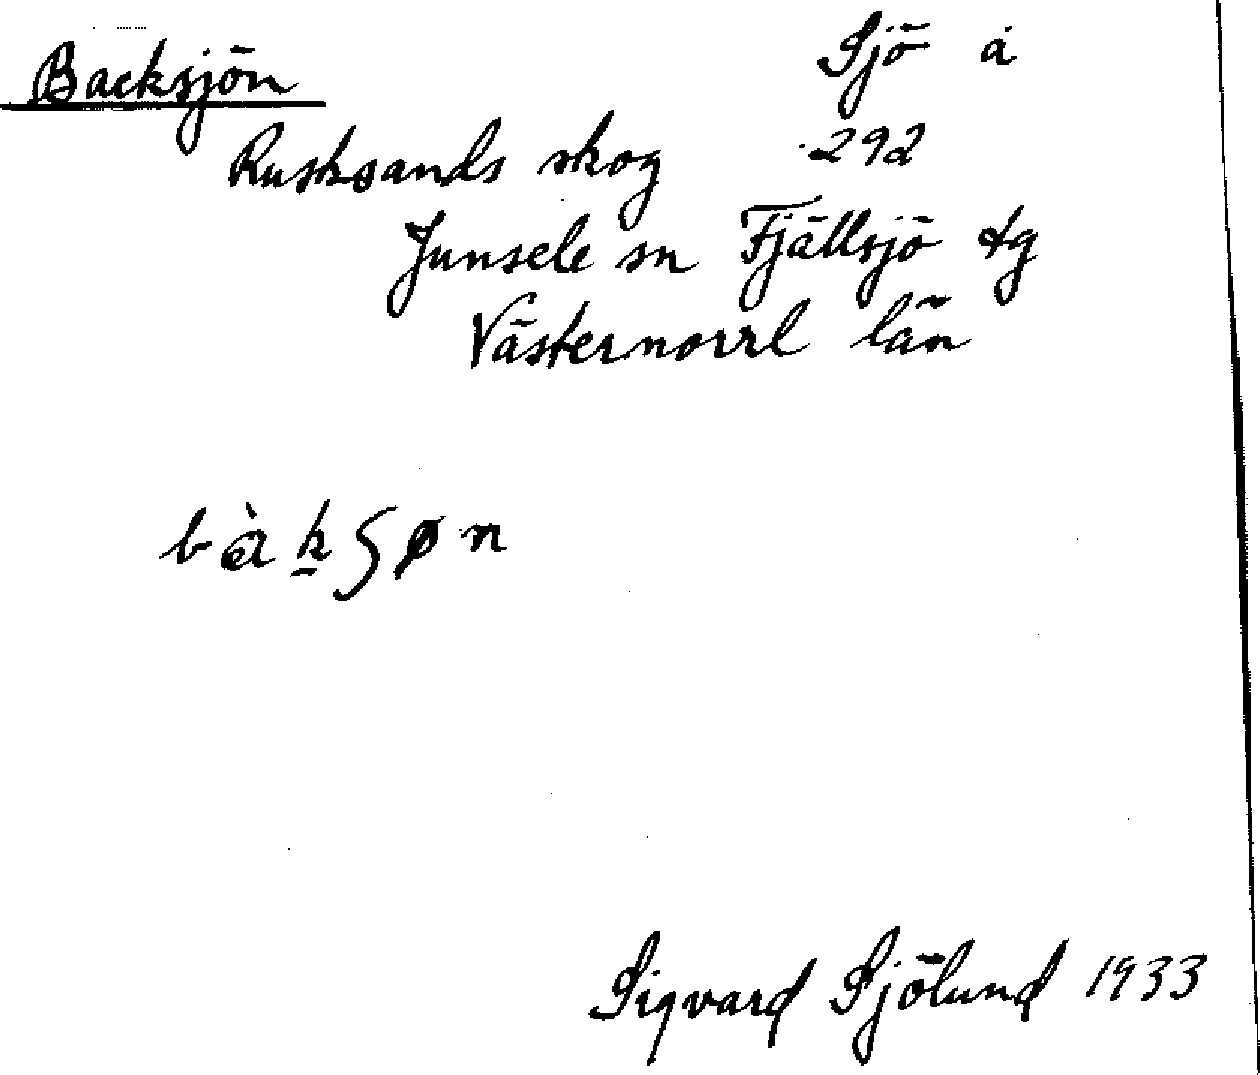 Backsjön Sjö å
Rusksands skog 292
Junsele sn Fjällsjö tg
Västernorrl län
bàk̠ʃøn
Sigvard Sjölund 1933